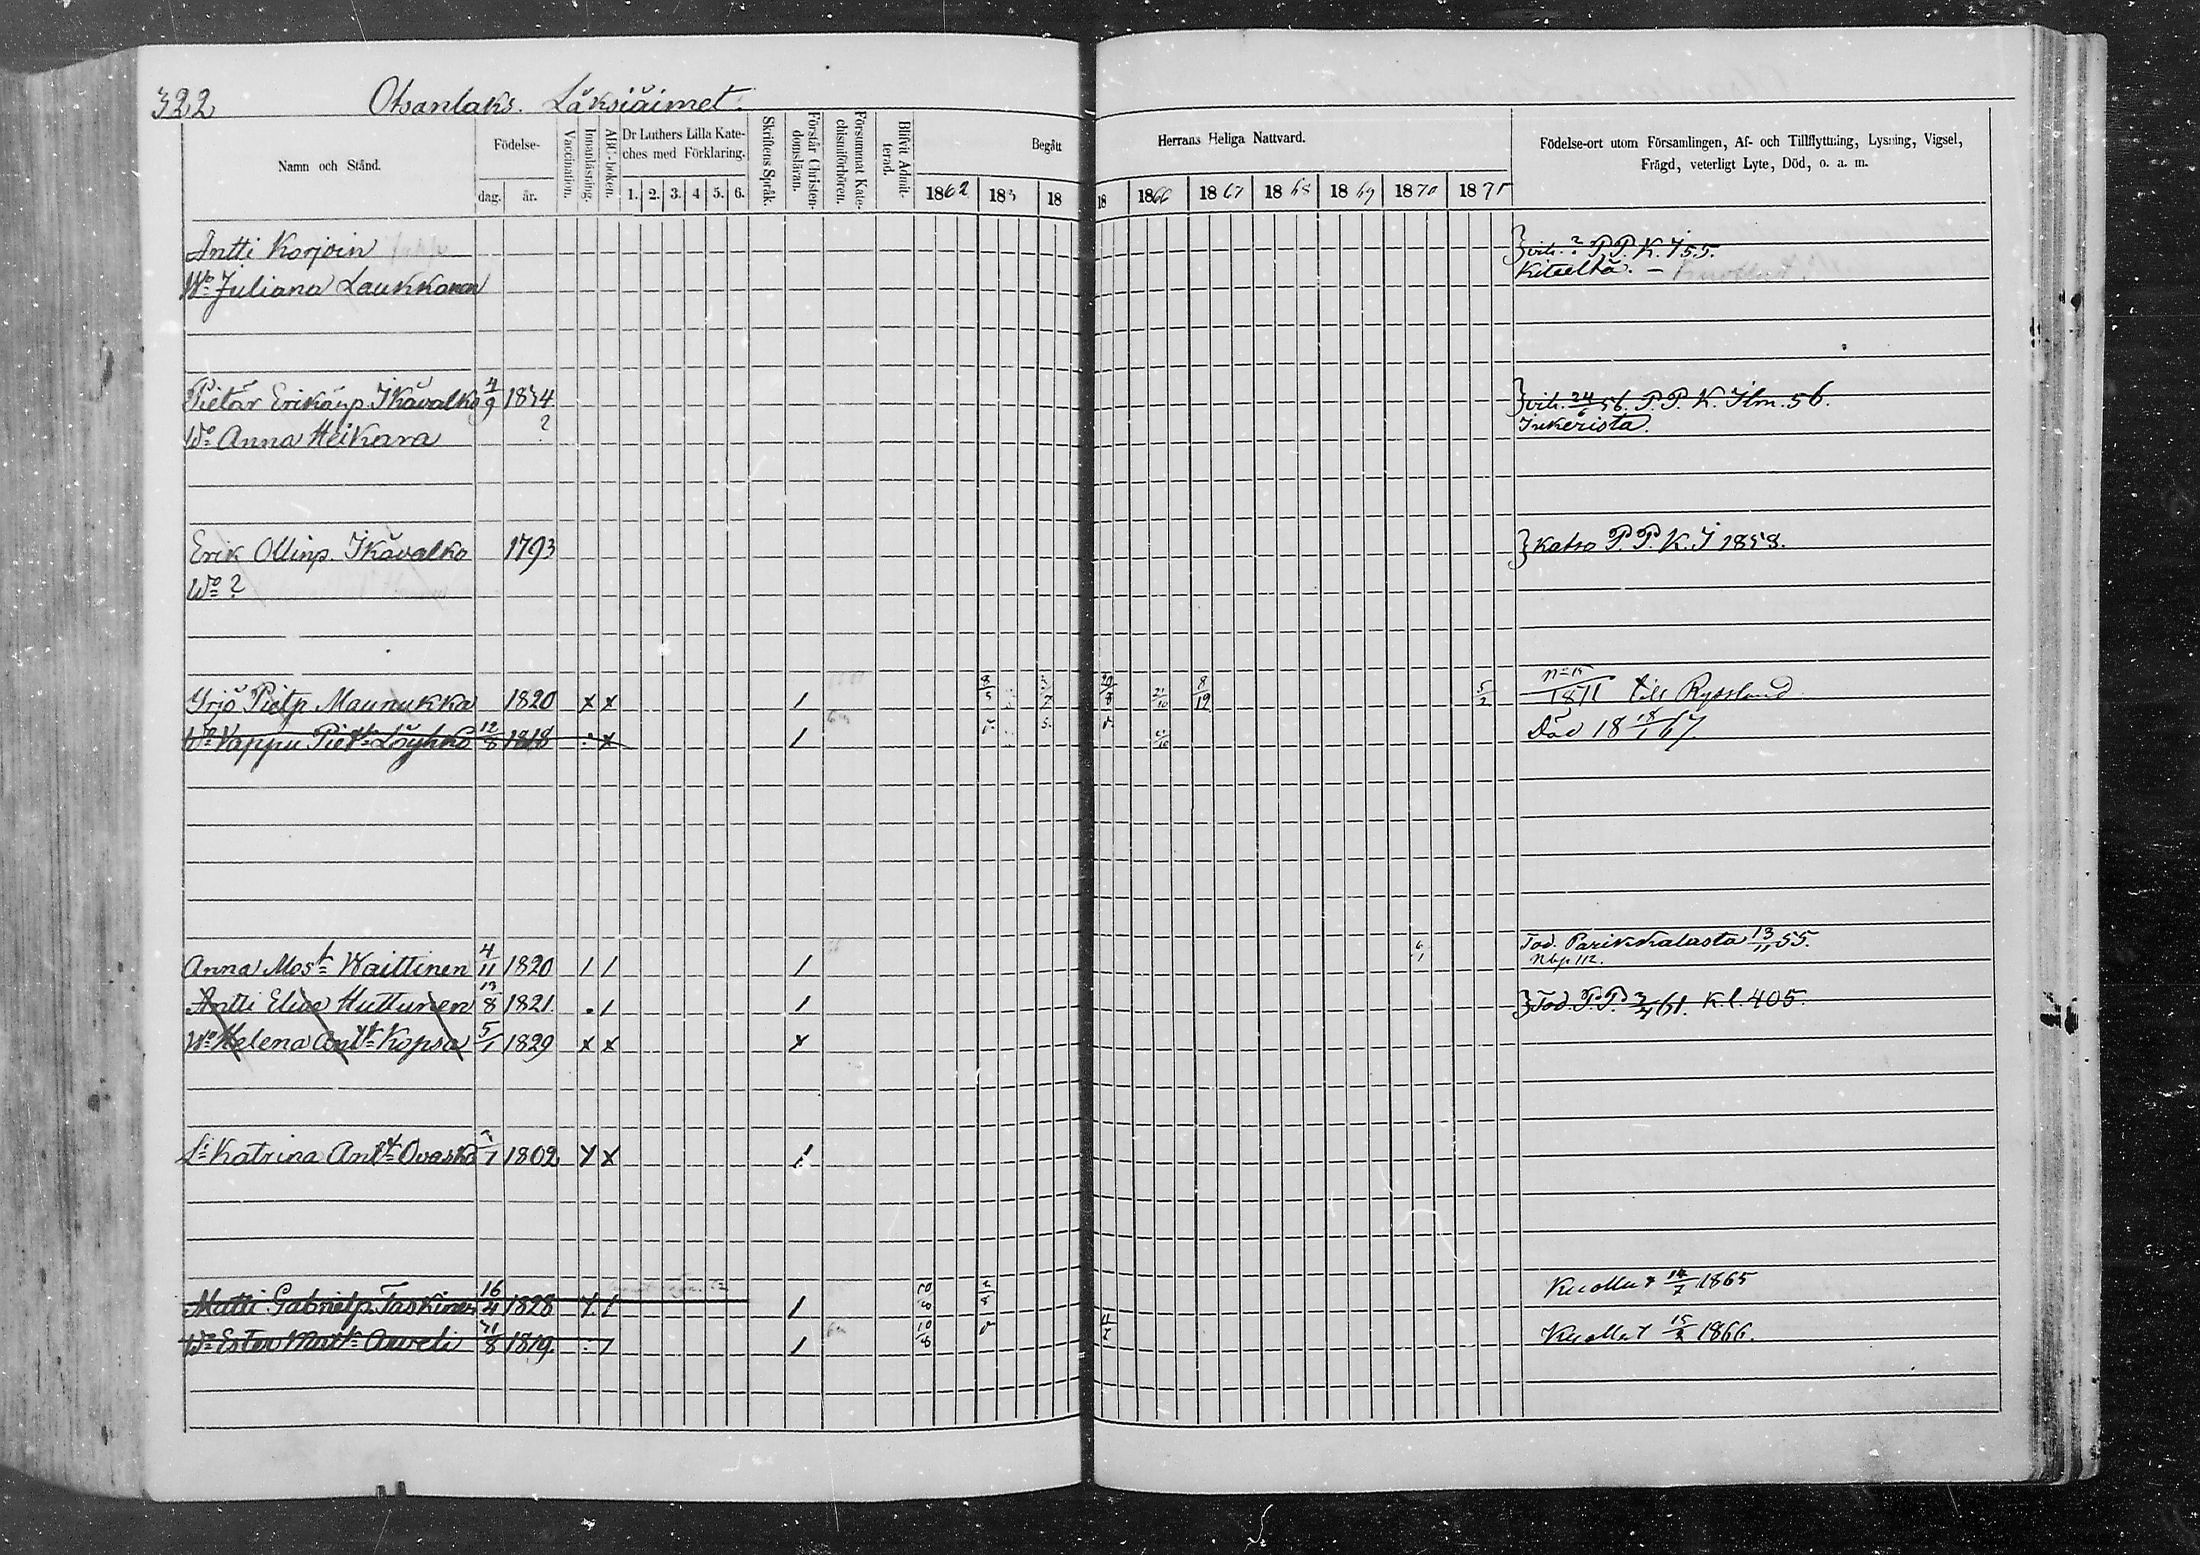 322 Otsanlaks. Läksiäimet.
Namn och Stånd.
Födelse-
dag. år.
Vaccination.
Innanläsning.
ABC-boken.
Dr Luthers Lilla Kate-
ches med Förklaring.
1. 2. 3. 4 5. 6.
Skriftens Språk.
Förstår Christen-
domsläran.
Försummat Kate-
chismiförhören.
Blifvit Admit-
terad.
Begått Herrans Heliga Nattvard.
1862 183 18 18 1866 1867 1868 1869 1870 1871
Födelse-ort utom Församlingen, Af- och Tillflyttning, Lysning, Vigsel,
Frägd, veterligt Lyte, Död, o. a. m.
Antti Korjoin } vih. ? P.P.K.I 55.
Wo Juliana Laukkanen Kiteeltä. –
Pietar Erikanp. Ikävalko 4/9 1834 } vih. 24/6 56. P.P.K. Ilm. 56.
Wo Anna Heikara ? Inkerista.
Erik Ollinp. Ikävalko 1793 } Katso P.P.K.I 1858.
Wo ?
Yrjö Pietp Maunukka 1820 x x 1 8/12 5/2 1871 till Ryssland
Wo Vappu Piett. Löyhkö 12/8 1818 x 1 Död 18 18/1 67.
Anna Most Waittinen 4/11 1820 1 1 1 6/1 Tod. Parikkalasta 13/11 55.
Nbp 112.
Antti Elias Huttunen 13/8 1821. 1 1 } Tod. P.P. 3/4 61. Kl. 405.
Wo Helena Antt. Kopsa 5/1 1829 x x x
Ls Katrina Antt. Ovaska 1802 x x 1
Matti Gabrielp. Taskinen 16/4 1828 x 1 1 Kuollut 14/7 1865
Wo Ester Matt. Arveli 31/8 1819. 1 1 10/8 Kuollut 15/3 1866.